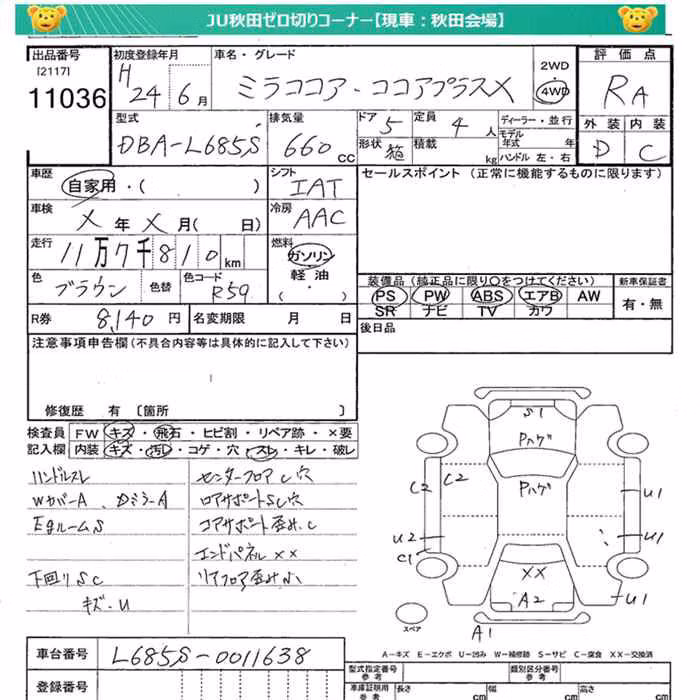 JU秋田ゼロ切りコーナー【現車：秋田会場】
出品番号 初度登録年月 車名・グレード 2WD 評価点
[2117] H
11036 24年6月 ミラココア・ココアプラスX 4WD RA
型式 排気量 ドア 定員 ディーラー・並行 外装 内装
DBA-L685S 660cc 5 4人 モデル年式 年 D C
形状 箱 積載 kg ハンドル 左・右
車歴 シフト セールスポイント (正常に機能するものに限ります)
自家用・( ) IAT
車検 冷房
X年X月( 日) AAC
走行 燃料
11万7千810km ガソリン
軽油
・( )
色 色替 色コード 装備品 (純正品に限り○をつけてください) 新車保証書
ブラウン R59 PS PW ABS エアB AW 有・無
SR ナビ TV カワ
R券 8,140円 名変期限 月 日 後日品
注意事項申告欄 (不具合内容等は具体的に記入して下さい)
修復歴 有 [箇所 ]
検査員 FW キズ・飛石・ヒビ割・リペア跡・×要
記入欄 内装 キズ・汚レ・コゲ・穴・スレ・キレ・破レ
ハンドルスレ センターフロアC穴
WカバーA、DミラーA ロアサポートSC穴
EgルームS コアサポート歪み、C
エンドパネルXX
下回りSC リアフロア歪み小
キズ・U
S1
Pハゲ
Pハゲ
C2 C2
U1
U2 U1
C1
XX
A2 U1
A1
スペア
A−キズ E−エクボ U−凹み W−補修跡 S−サビ C−腐食 XX−交換済
車台番号 L685S-0011638
登録番号
型式指定番号 参考 類別区分番号 参考
車庫証明用 参考 長さ cm 幅 cm 高さ cm